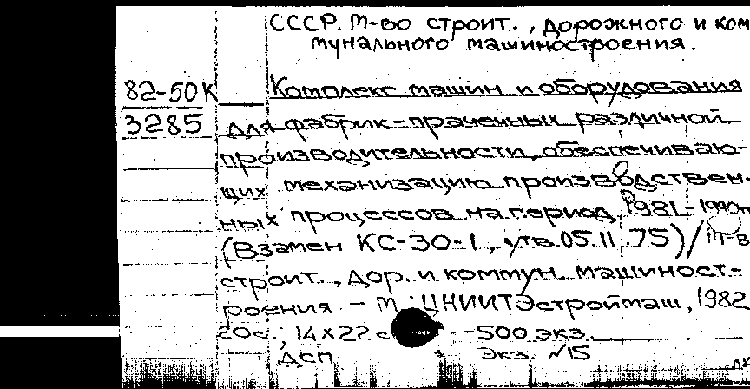 СССР. М-во строит., дорожного и ком
мунального машиностроения.
82-50К Комплекс машин и оборудования
3285 для фабрик-прачечных различной
производительности, обеспечиваю-
щих механизацию производствен-
ных процессов на период 1981-1990гг
(Взамен КС-30-1, утв. 05.11.75)/ М-в
строит., дор. и коммун. машиност-
роения. - М.: ЦНИИТЭстроймаш, 1982
20с.; 14х22 с 500 экз.
ДСП Экз. №15